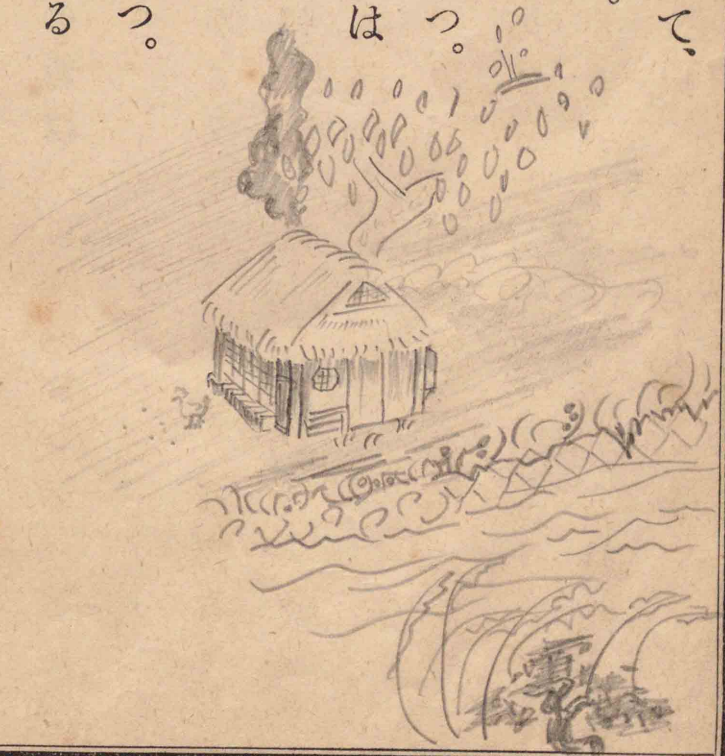 て、
つ。
は
つ。
る